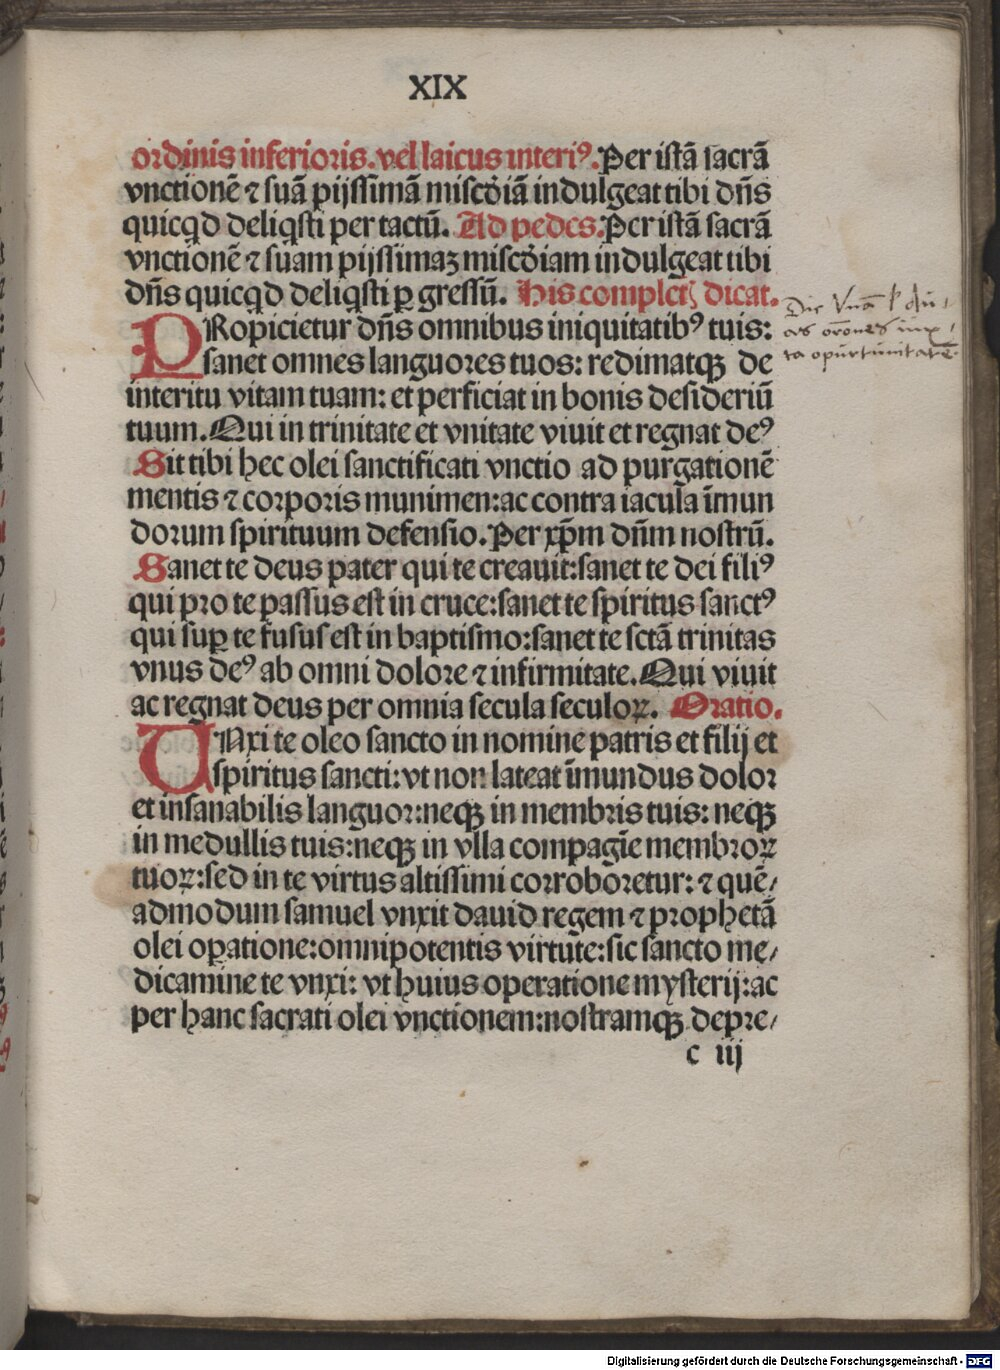 XIX
ordinis inferioris. vel laicus interiꝰ. Per istā sacrā
vnctionē ⁊ suā pijssimā miscd̓iā indulgeat tibi dn̄s
quicqd deliqsti per tactū. Ad pedes. Per istā sacrā
vnctionē ⁊ suam pijssimaʒ miscd̓iam indulgeat tibi
dn̄s quicqd deliqsti ꝑ gressū. His completꝭ dicat.
PRopicietur dn̄s omnibus iniquitatibꝰ tuis:
sanet omnes languores tuos: redimatqꝫ de
interitu vitam tuam: et perficiat in bonis desideriū
tuum. Qui in trinitate et vnitate viuit et regnat deꝰ
Sit tibi hec olei sanctificati vnctio ad purgationē
mentis ⁊ corporis munimen: ac contra iacula īmun
dorum spirituum defensio. Per xp̄m dn̄m nostrū.
Sanet te deus pater qui te creauit: sanet te dei filiꝰ
qui pro te passus est in cruce: sanet te spiritus sanctꝰ
qui suꝑ te fusus est in baptismo: sanet te sctā trinitas
vnus deꝰ ab omni dolore ⁊ infirmitate. Qui viuit
ac regnat deus per omnia secula seculoꝝ. Oratio.
VNxi te oleo sancto in nomine patris et filij et
spiritus sancti: vt non lateat īmundus dolor
et insanabilis languor: neqꝫ in membris tuis: neqꝫ
in medullis tuis: neqꝫ in vlla compagīe membroꝝ
tuoꝝ: sed in te virtus altissimi corroboretur: ⁊ quē/
admodum samuel vnxit dauid regem ⁊ prophetā
olei oꝑatione: omnipotentis virtute: sic sancto me/
dicamine te vnxi: vt huius operatione mysterij: ac
per hanc sacrati olei vnctionem: nostramqꝫ depre/
c iij
Dic Vnā
oro̅nes iux
ta opurtunitatē
Digitalisierung gefördert durch die Deutsche Forschungsgemeinschaft - DFG